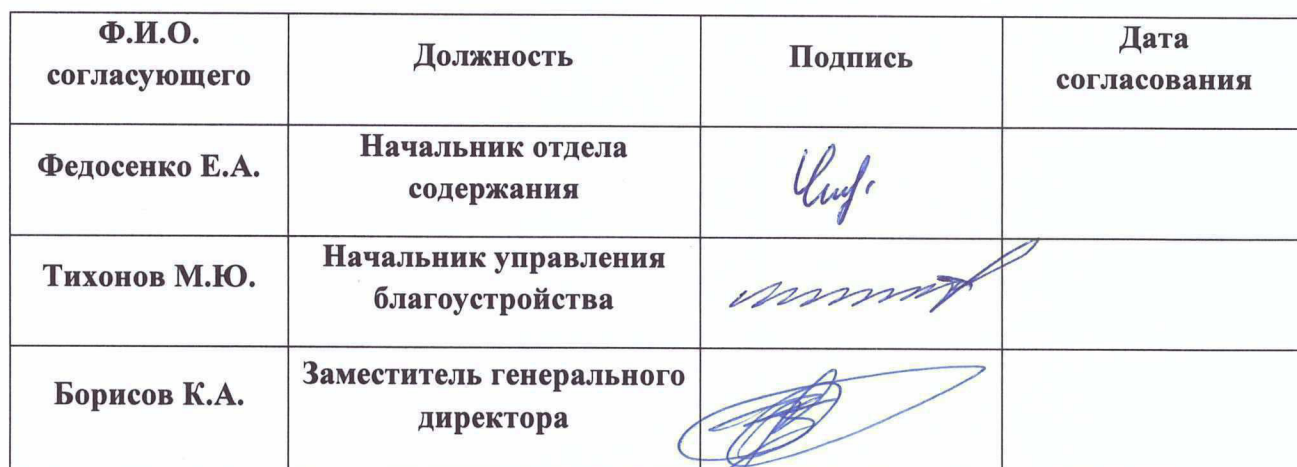 Ф.И.О.
согласующего
Должность
Подпись
Дата
согласования
Федосенко Е.А.
Начальник отдела
содержания
Тихонов М.Ю.
Начальник управления
благоустройства
Борисов К.А.
Заместитель генерального
директора